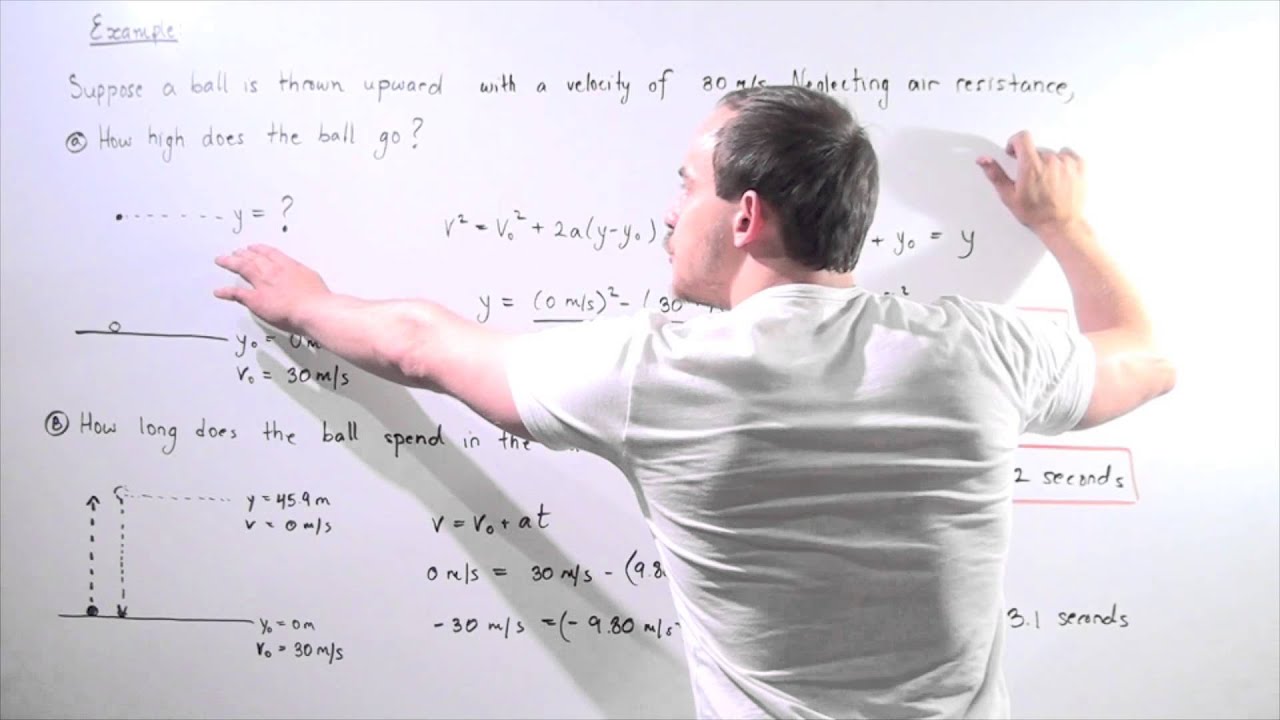 Example:
Suppose a ball is thrown upward with a velocity of 30 m/s. Neglecting air resistance,
Ⓐ How high does the ball go?
y = ?
v² = v₀² + 2a(y-y₀)
+ y₀ = y
y = (0 m/s)² - (30
y₀ = 0m
v₀ = 30 m/s
Ⓑ How long does the ball spend in the
2 seconds
y = 45.9 m
v = 0 m/s
v = v₀ + at
0 m/s = 30 m/s - (9.80
-30 m/s = (- 9.80 m/s
3.1 seconds
y₀ = 0m
v₀ = 30 m/s